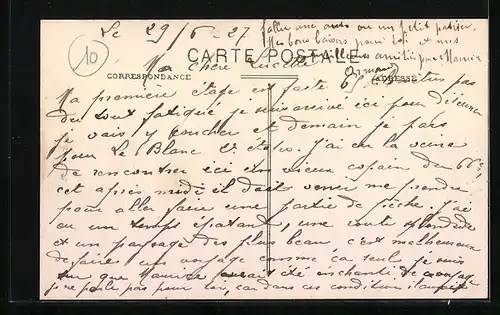 Le 29/6-27
faller une auto ou un petit
Mes bons baisers pour toi et mes
meilleures amitiés pour Maurice
Armand
10
CARTE POSTALE
CORRESPONDANCE
ADRESSE
Ma chère Lucette
Ma première étape est faite et suis pas
du tout fatigué je suis arrivé ici pour déjeuner
je vais y coucher et demain je pars
pour Le Blanc J'ai eu la veine
de rencontrer ici un vieux copain du 66e
cet après midi il doit venir me prendre
pour aller faire une partie de pêche. J'ai
eu un temps épatant, une route splendide
et un paysage des plus beau, c'est malheureux
de faire un voyage comme ça seul je suis
sur que Maurice aurait été enchanté de ce voyage
je ne parle pas pour toi, car dans ces conditions il